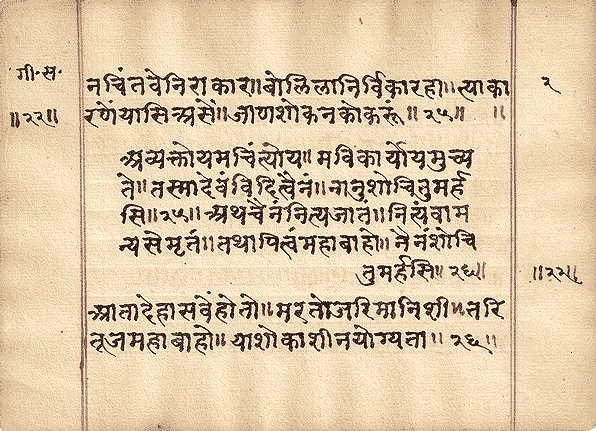 गी·स·
॥२२॥
२
॥२२॥
नचिंतवेनिराकार॥बोलिलानिर्विकारहा॥त्याका
रणेंयासिअसें॥जाणशोकनकोकरूं॥२५॥ ॥
अव्यक्तोयमचिंत्योय॥मविकार्योयमुच्य
ते॥तस्मादेवंविदित्वैनं॥नानुशोचितुमर्ह
सि॥२५॥अथचैनंनित्यजातं॥नित्यंवाम
न्यसेमृतं॥तथापित्वंमहाबाहो॥नैनंशोचि
तुमर्हसि॥२६॥
आतादेहासवेंहोतो॥मरतोजरिमानिशी॥तरि
तूजमहाबाहो॥याशोकाशीनयोग्यता॥२६॥